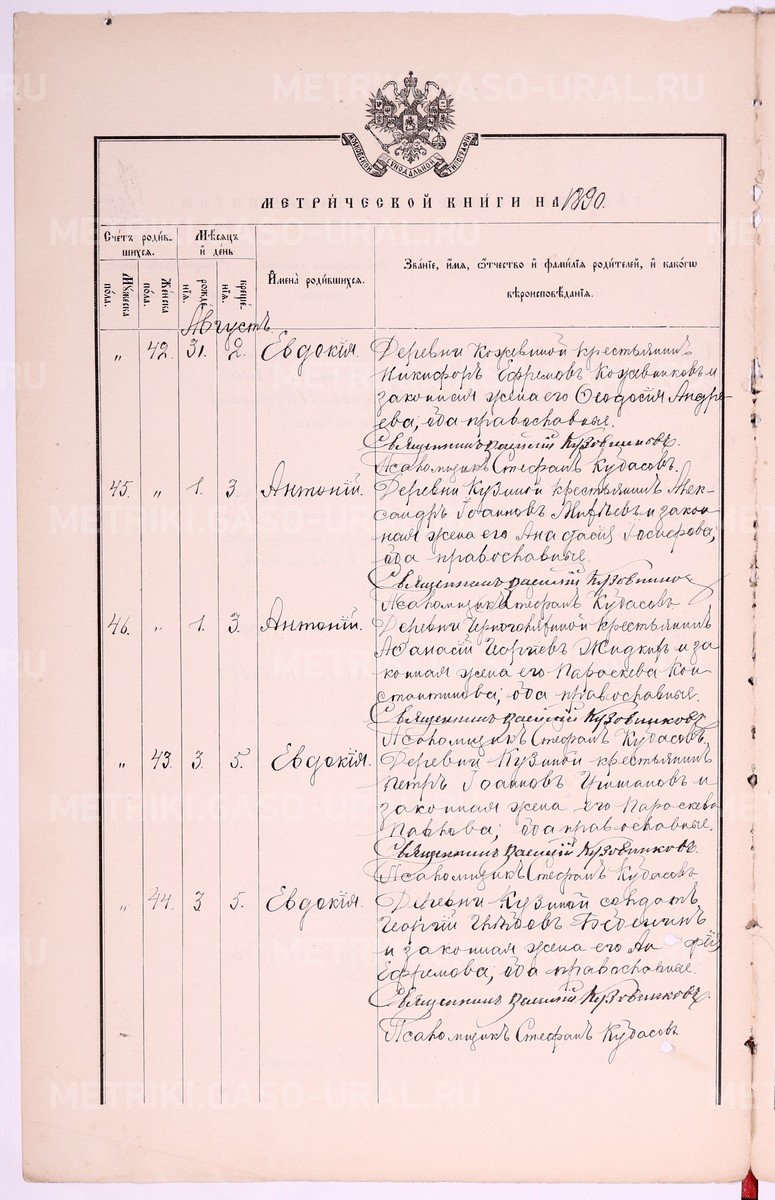 METRIKI.GASO-URAL.RU
МОСКОВСКОЙ СѴНОДАЛЬНОЙ ТИПОГРАФІИ
МЕТРИ́ЧЕСКОЙ КНИ́ГИ НА 1890.
Сче́тъ роди́в-
шихся.
Мѣ́сяцъ
и҆ де́нь
Мꙋ́жеска
по́ла.
Же́нска
по́ла.
рожде́-
нїя.
креще́-
нїя.
И҆мена̀ роди́вшихся.
Зва́нїе, и҆́мя, ѻ҆́тчество и҆ фами́лїя роди́телей, и҆ како́гѡ
вѣроисповѣ́данїя.
Августъ.
„ 42. 31. 2. Евдокія.
Деревни Кожевиной крестьянинъ
Никифоръ Ефремовъ Кожевниковъ и
законная жена его Ѳеодосія Андре-
ева, оба православные.
Священникъ Василій Кузовниковъ.
Псаломщикъ Стефанъ Кудасовъ.
45. „ 1. 3. Антоній.
Деревни Кузиной крестьянинъ Алек-
сандръ Іоанновъ и закон-
ная жена его Анастасія Іосифова,
оба православные.
Священникъ Василій Кузовников
Псаломщикъ Стефанъ Кудасовъ
46. „ 1. 3. Антоній.
Деревни крестьянинъ
Аѳанасій Георгіевъ Жидкихъ и за-
конная жена его Параскева Кон-
стантинова, оба православные.
Священникъ Василій Кузовниковъ
Псаломщикъ Стефанъ Кудасовъ.
„ 43. 3. 5. Евдокія.
Деревни Кузиной крестьянинъ
Петръ Іоанновъ и
законная жена его Параскева
Павлова, оба православные.
Священникъ Василій Кузовниковъ.
Псаломщикъ Стефанъ Кудасовъ
„ 44. 3 5. Евдокія.
Деревни Кузиной солдатъ
Георгій
и законная жена его
Ефремова, оба православные.
Священникъ Василій Кузовниковъ.
Псаломщикъ Стефанъ Кудасовъ